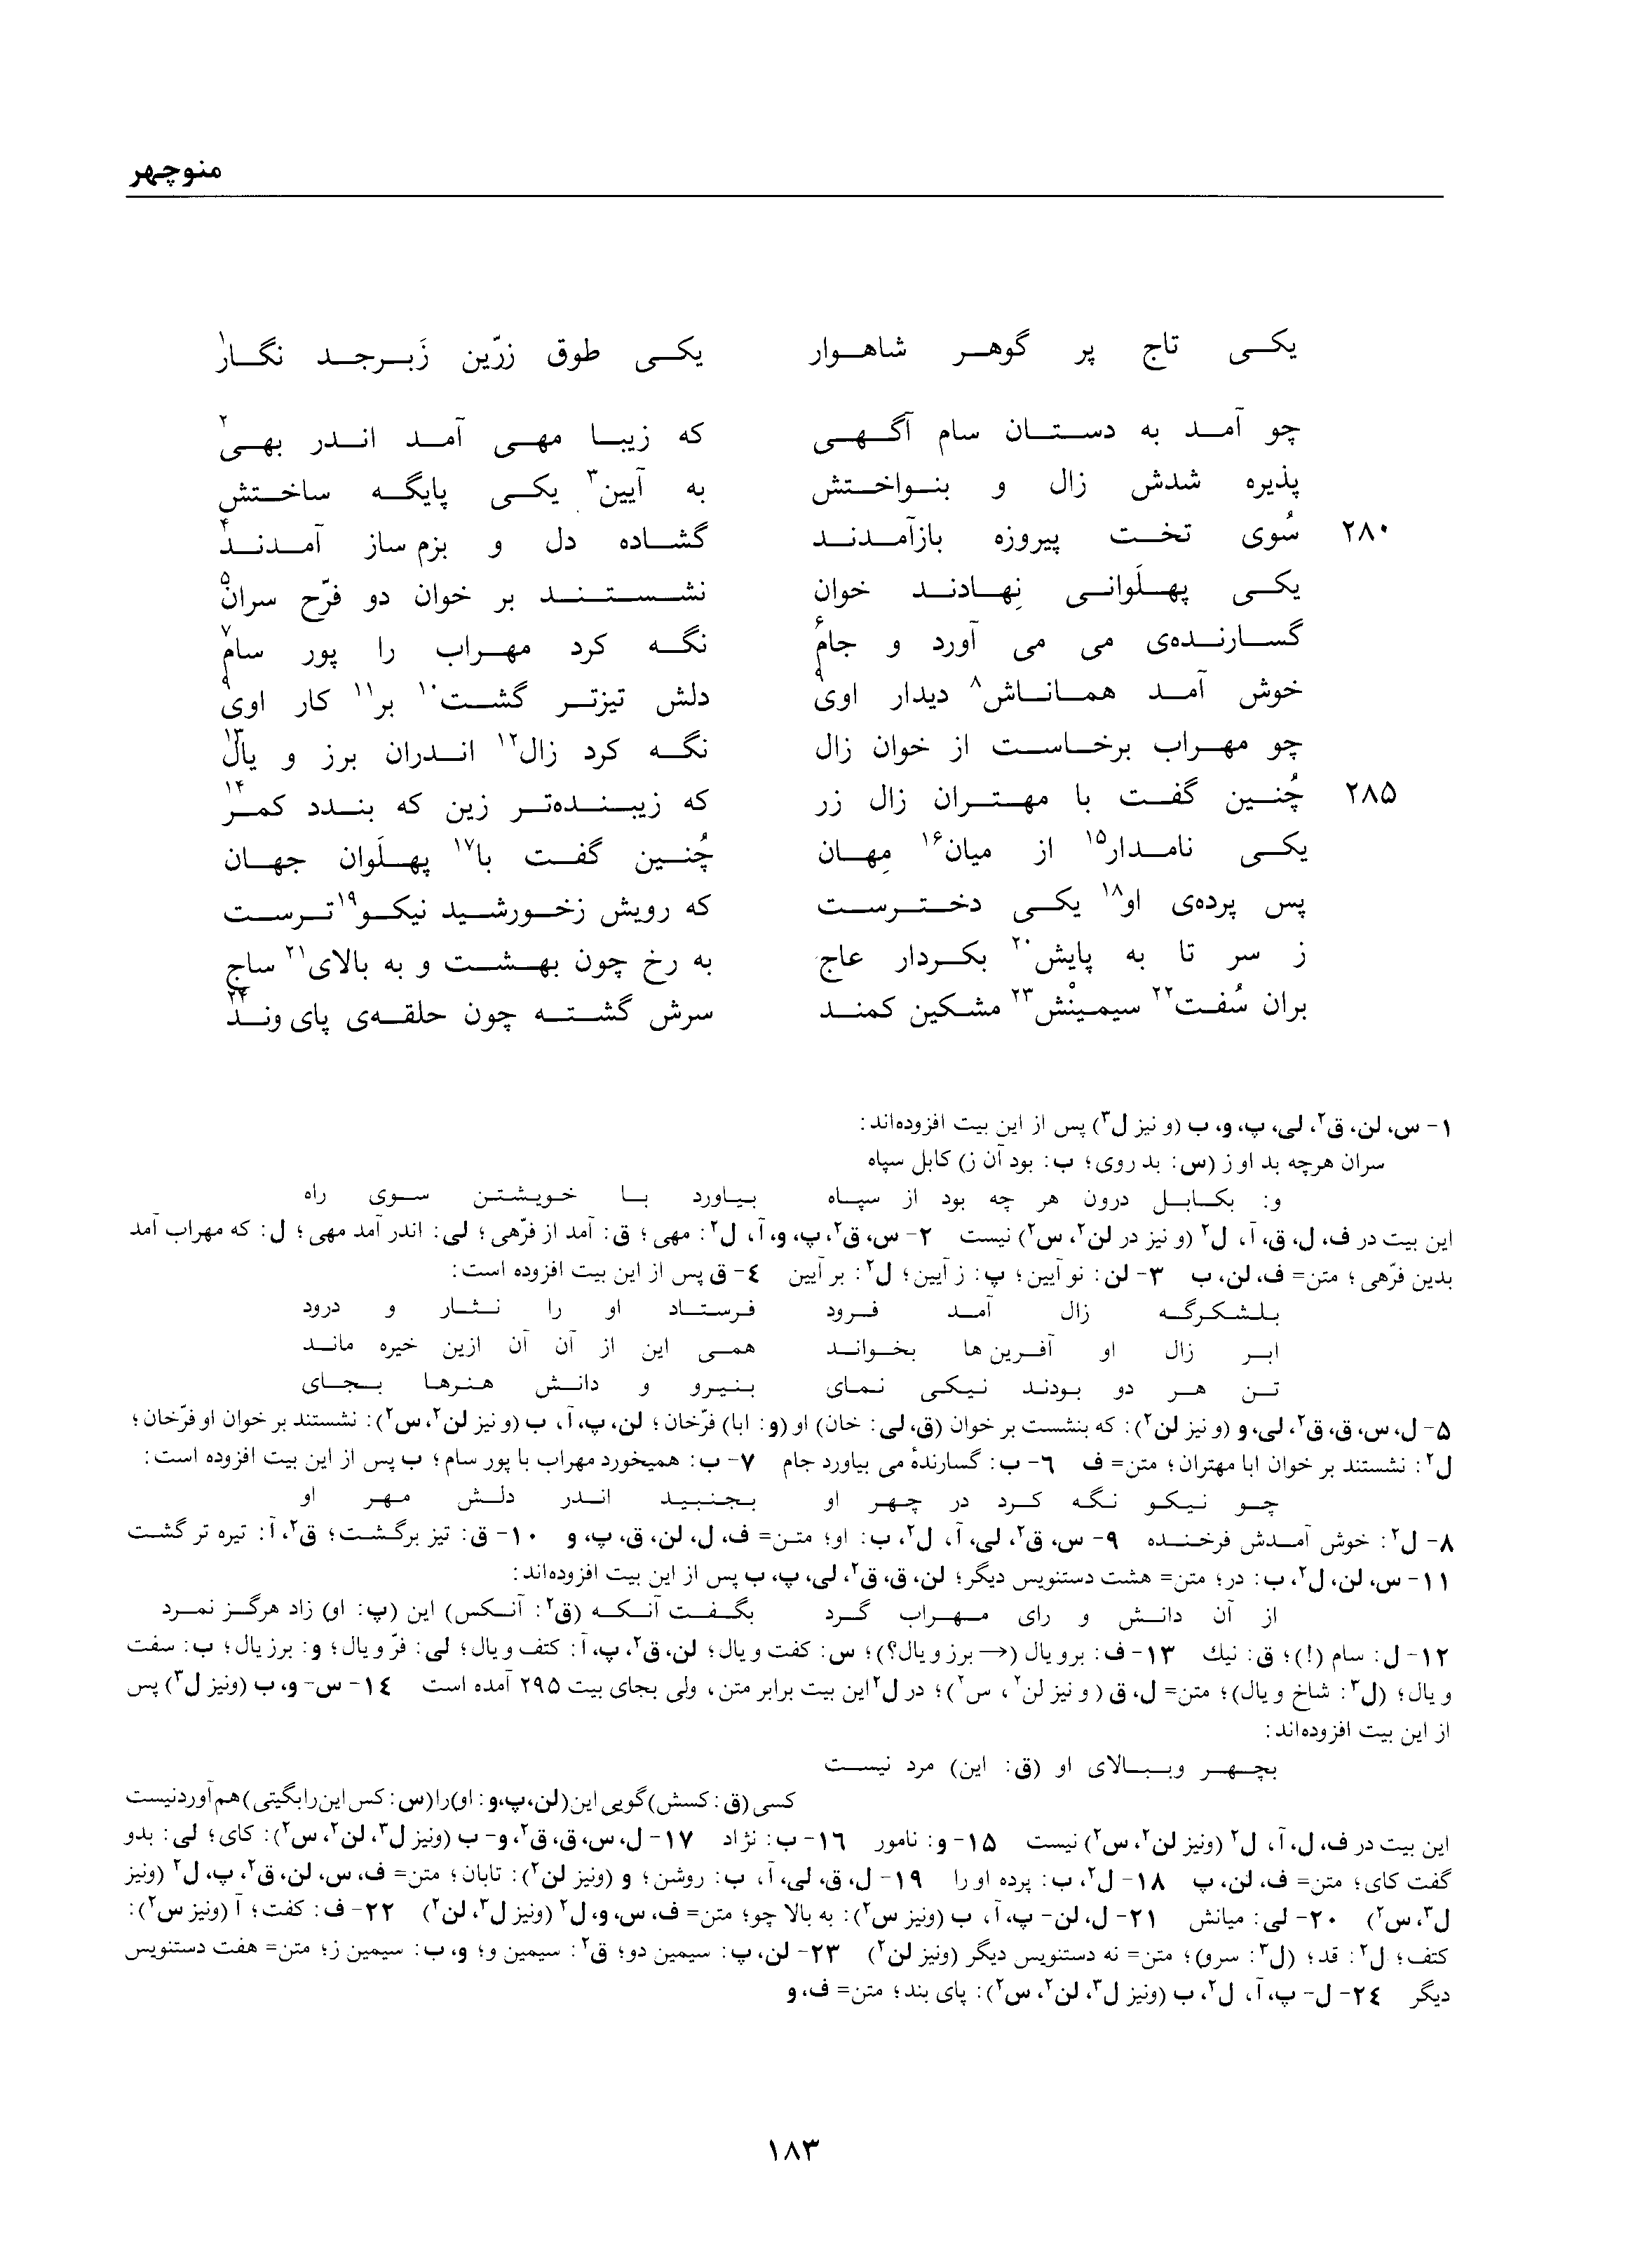 منوچهر
یکی تاج پر گوهر شاهوار یکی طوق زرّین زَبرجد نگار۱
چو آمد به دستان سام آگهی که زیبا مهی آمد اندر بهی۲
پذیره شدش زال و بنواختش به آیین۳ یکی پایگه ساختش
۲۸۰ سُوی تخت پیروزه بازآمدند گشاده دل و بزم ساز آمدند۴
یکی پهلَوانی نِهادند خوان نشستند بر خوان دو فرّخ سران۵
گسارنده‌ی می می آورد و جام۶ نگه کرد مهراب را پور سام۷
خوش آمد هماناش۸ دیدار اوی۹ دلش تیزتر گشت۱۰ بر۱۱ کار اوی۹
چو مهراب برخاست از خوان زال نگه کرد زال۱۲ اندران برز و یال۱۳
۲۸۵ چُنین گفت با مهتران زال زر که زیبنده‌تر زین که بندد کمر۱۴
یکی نامدار۱۵ از میان۱۶ مِهان چُنین گفت با۱۷ پهلَوان جهان
پس پرده‌ی او۱۸ یکی دخترست که رویش زخورشید نیکو۱۹ترست
ز سر تا به پایش۲۰ بکردار عاج به رخ چون بهشت و به بالای۲۱ ساج
بران سُفت۲۲ سیمینْش۲۳ مشکین کمند سرش گشته چون حلقه‌ی پای وند۲۴
۱- س، لن، ق۲، لی، پ، و، ب (و نیز ل۳) پس از این بیت افزوده‌اند:
سران هرچه بد او ز (س: بد روی؛ ب: بود آن ز) کابل سپاه
و: بکابل درون هر چه بود از سپاه بیاورد با خویشتن سوی راه
این بیت در ف، ل، ق، آ، ل۲ (و نیز در لن۲، س۲) نیست ۲- س، ق۲، پ، و، آ، ل۲: مهی؛ ق: آمد از فرّهی؛ لی: اندر آمد مهی؛ ل: که مهراب آمد
بدین فرّهی؛ متن= ف، لن، ب ۳- لن: نو آیین؛ پ: ز آیین؛ ل۲: بر آیین ۴- ق پس از این بیت افزوده است:
بلشکرگه زال آمد فرود فرستاد او را نثار و درود
ابر زال او آفرین ها بخواند همی این از آن آن ازین خیره ماند
تن هر دو بودند نیکی نمای بنیرو و دانش هنرها بجای
۵- ل، س، ق، ق۲، لی، و (و نیز لن۲): که بنشست بر خوان (ق، لی: خان) او (و: ابا) فرّخان؛ لن، پ، آ، ب (و نیز لن۲، س۲): نشستند بر خوان او فرّخان؛
ل۲: نشستند بر خوان ابا مهتران؛ متن= ف ۶- ب: گسارندهٔ می بیاورد جام ۷- ب: همیخورد مهراب با پور سام؛ ب پس از این بیت افزوده است:
چو نیکو نگه کرد در چهر او بجنبید اندر دلش مهر او
۸- ل۲: خوش آمدش فرخنده ۹- س، ق۲، لی، آ، ل۲، ب: او؛ متن= ف، ل، لن، ق، پ، و ۱۰- ق: تیز برگشت؛ ق۲، آ: تیره تر گشت
۱۱- س، لن، ل۲، ب: در؛ متن= هشت دستنویس دیگر؛ لن، ق، ق۲، لی، پ، ب پس از این بیت افزوده‌اند:
از آن دانش و رای مهراب گرد بگفت آنکه (ق۲: آنکس) این (پ: او) زاد هرگز نمرد
۱۲- ل: سام (!)؛ ق: نیك ۱۳- ف: برو یال (← برز و یال؟)؛ س: کفت و یال؛ لن، ق۲، پ، آ: کتف و یال؛ لی: فرّ و یال؛ و: برز یال؛ ب: سفت
و یال؛ (ل۳: شاخ و یال)؛ متن= ل، ق (و نیز لن۲، س۲)؛ در ل۲ این بیت برابر متن، ولی بجای بیت ۲۹۵ آمده است ۱۴- س- و، ب (ونیز ل۳) پس
از این بیت افزوده‌اند:
بچهر و ببالای او (ق: این) مرد نیست
کسی (ق: کسش) گویی این (لن، پ، و: او) را (س: کس این را بگیتی) هم آورد نیست
این بیت در ف، ل، آ، ل۲ (ونیز لن۲، س۲) نیست ۱۵- و: نامور ۱۶- ب: نژاد ۱۷- ل، س، ق، ق۲، و- ب (ونیز ل۳، لن۲، س۲): کای؛ لی: بدو
گفت کای؛ متن= ف، لن، پ ۱۸- ل۲، ب: پرده او را ۱۹- ل، ق، لی، آ، ب: روشن؛ و (ونیز لن۲): تابان؛ متن= ف، س، لن، ق۲، پ، ل۲ (ونیز
ل۳، س۲) ۲۰- لی: میانش ۲۱- ل، لن- پ، آ، ب (ونیز س۲): به بالا چو؛ متن= ف، س، و، ل۲ (ونیز ل۳، لن۲) ۲۲- ف: کفت؛ آ (ونیز س۲):
کتف؛ ل۲: قد؛ (ل۳: سرو)؛ متن= نه دستنویس دیگر (ونیز لن۲) ۲۳- لن، پ: سیمین دو؛ ق۲: سیمین و؛ و، ب: سیمین ز؛ متن= هفت دستنویس
دیگر ۲۴- ل- پ، آ، ل۲، ب (ونیز ل۳، لن۲، س۲): پای بند؛ متن= ف، و
۱۸۳